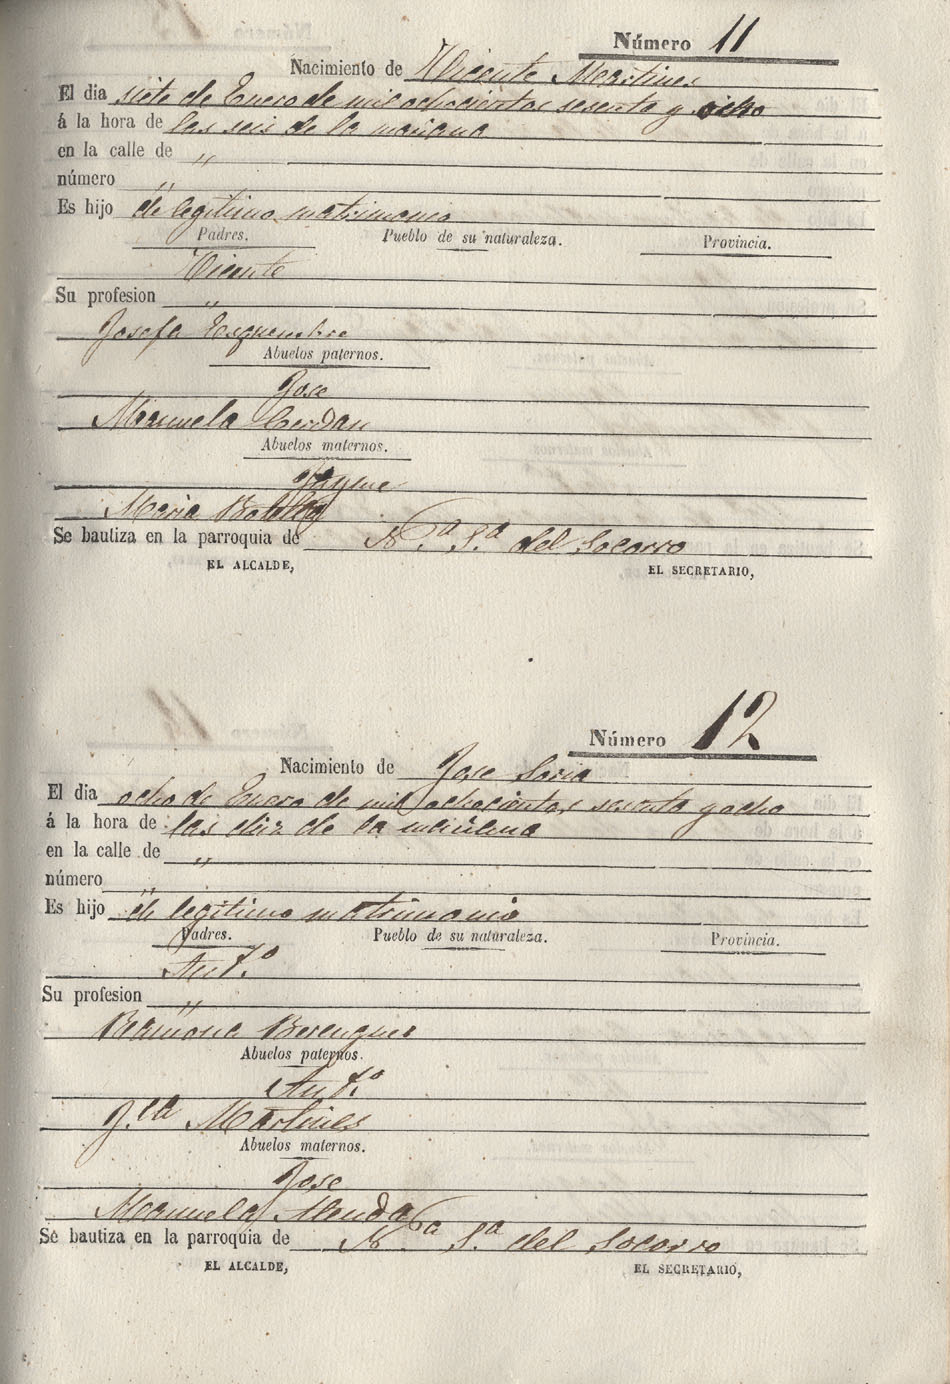 Número 11
Nacimiento de Vicente Martines
El dia siete de Enero de mil ochocientos sesenta y ocho
á la hora de las seis de la mañana
en la calle de "
número "
Es hijo de legitimo matrimonio
Padres. Pueblo de su naturaleza. Provincia.
Vicente
Su profesion "
Josefa Esquembre
Abuelos paternos.
Jose
Manuela Cerdan
Abuelos maternos.
Jayme
Maria Botella
Se bautiza en la parroquia de N.ª S.ª del Socorro
EL ALCALDE, EL SECRETARIO,
Número 12
Nacimiento de Jose Soria
El dia ocho de Enero de mil ochocientos sesenta y ocho
á la hora de las diez de la mañana
en la calle de "
número "
Es hijo de legitimo matrimonio
Padres. Pueblo de su naturaleza. Provincia.
Ant.º
Su profesion "
Ramona Berenguer
Abuelos paternos.
Ant.º
J.fa Martines
Abuelos maternos.
Jose
Manuela
Se bautiza en la parroquia de N.ª S.ª del Socorro
EL ALCALDE, EL SECRETARIO,